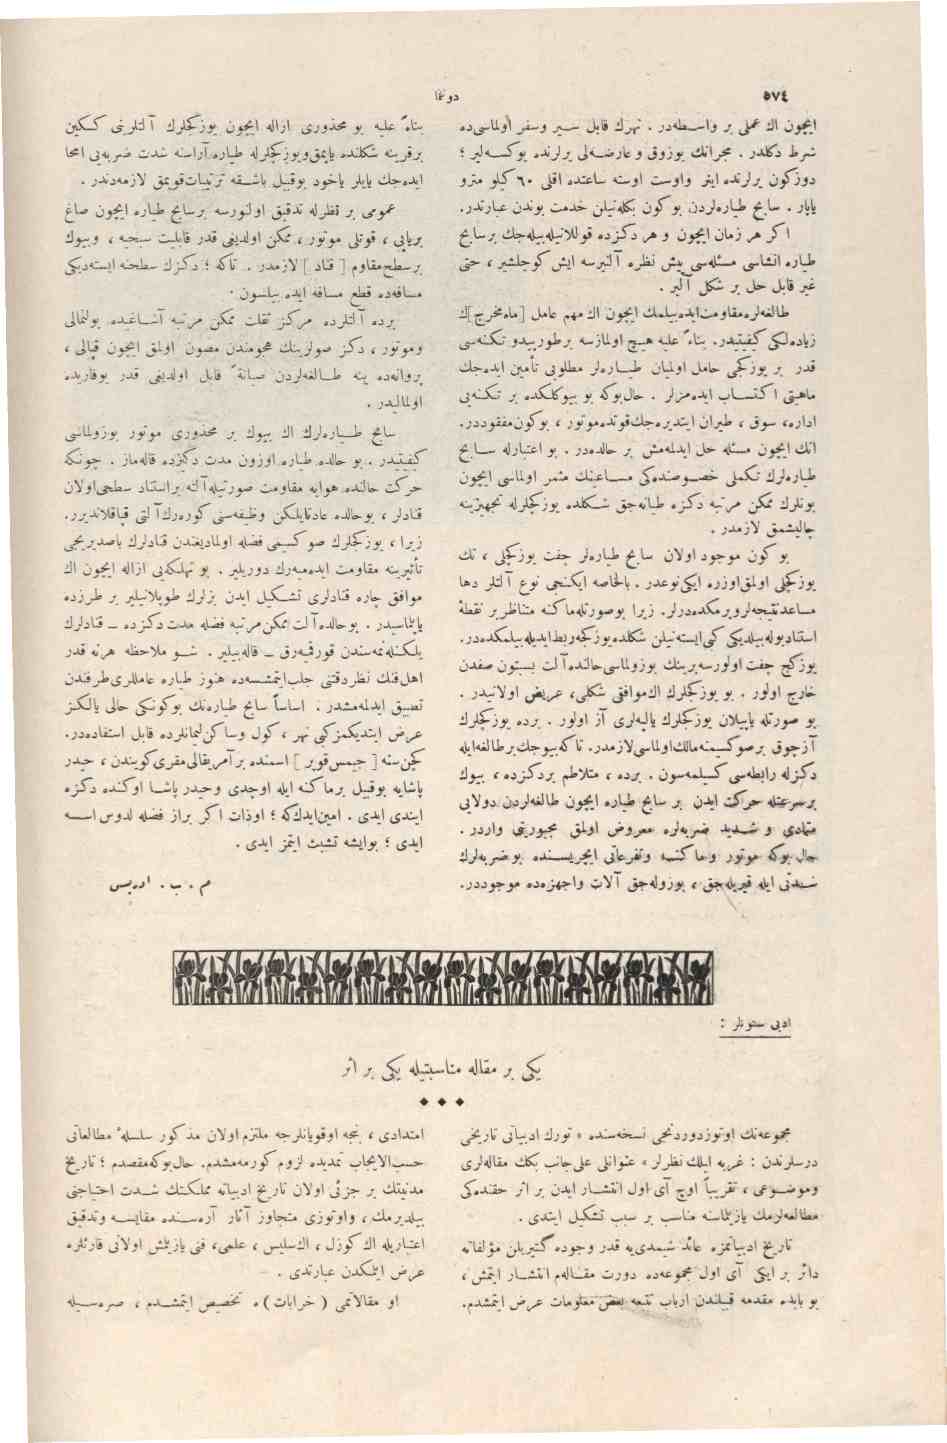 ٥٧٤
دوننما
ایچون اك عملی بر واسطه‌در . نهرك قابل سیر وسفر اولماسی‌ده
شرط دکلدر . مجرانك بوزوق و عارضه‌لی یرلرنده یوکسه‌لیر ؛
دوزکون یرلرنده اینر واوست اوسته ساعتده اقلی ٦٠ کیلو مترو
یاپار . سابح طیاره‌لردن بو کون بکله‌نیلن خدمت بوندن عبارتدر.
اکر هر زمان ایچون و هر دکزده قوللانیله‌بیله‌جك برسابح
طیاره انشاسی مسئله‌سی پیش نظره آلنیرسه ایش کوجلشیر ، حتی
غیر قابل حل بر شکل آلیر .
طالغه‌لره‌مقاومت‌ایده‌بیلمك ایچون اك مهم عامل [ماه‌مخرج]ك
زیاده‌لکی کیفیتیدر. بناءً علیه هیچ اولمازسه برطورپیدو تکنه‌سی
قدر بر یوزکجی حامل اولمیان طیاره‌لر مطلوبی تأمین ایده‌جك
ماهیتی اکتساب ایده‌مزلر . حال‌بوکه بو بیوکلکده بر تکنه‌یی
اداره، سوق ، طیران ایتدیره‌جك‌قوتده‌موتور ، بوکون‌مفقوددر.
انك ایچون مسئله حل ایدلمه‌مش بر حالده‌در . بو اعتبارله سابح
طیاره‌لرك تکملی خصوصنده‌کی مساعینك مثمر اولماسی ایچون
بونلرك ممکن مرتبه دکزه طیانه‌جق شکلده یوزکچلرله تجهیزینه
چالیشمق لازمدر .
بو کون موجود اولان سابح طیاره‌لر جفت یوزکچلی ، تك
یوزکچلی اولمق‌اوزره ایکی‌نوعدر . بالخاصه ایکنجی نوع آلتلر دها
مساعدنتیجه‌لرویرمکده‌درلر. زیرا بوصورتله‌ماکنه متناظر بر نقطهٔ
استنادبوله‌بیلدیکی کبی‌ایسته‌نیلن شکلده‌یوزکجه‌ربط‌ایدیله‌بیلمکده‌در.
یوزکچ جفت اولورسه‌برینك بوزولماسی‌حالنده‌آلت بسبتون صفدن
خارج اولور . بو یوزکچلرك اك‌موافقی شکلی، عریض اولانیدر .
بو صورتله یاپیلان یوزکچلرك یالپه‌لری آز اولور . برده یوزکچلرك
آزچوق برصوکسیمنه‌مالك‌اولماسی‌لازمدر. تاکه‌بیوجك‌برطالغه‌ایله
دکزله رابطه‌سی کسیلمه‌سون . برده ، متلاطم بردکزده ، بیوك
برسرعتله حرکت ایدن بر سابح طیاره ایچون طالغه‌لردن‌دولایی
متمادی و شدید ضربه‌لره معروض اولمق مجبوریتی واردر .
حال بوکه موتور وماکنه وتفرعاتی ایچریسنده بوضربه‌لرك
شدتی ایله قیریله‌جق ، بوزوله‌جق آلات واجهزه‌ده موجوددر.
بناءً علیه بو محذوری ازاله ایچون یوزکچلرك آلتلرینی کسکین
برقرینه شکلنده یاپمق‌ویوزکچلرله طیاره‌آراسنه شدت ضربه‌یی امحا
ایده‌جك یایلر یاخود بوقبیل باشقه ترتیبات‌قویمق لازمه‌دندر .
عمومی بر نظرله تدقیق اولنورسه برسابح طیاره ایچون صاغ
بریاپی ، قوتلی موتور ، ممکن اولدیغی قدر قابلیت سبحیه ، وبیوك
برسطح‌مقاوم [ قناد ] لازمدر . تاکه ؛ دکزك سطحنه ایسته‌دیکی
مسافه‌ده قطع مسافه ایده بیلسون .
برده آلتلرده مرکز ثقلت ممکن مرتبه آشاغیده بولنمالی
وموتور ، دکز صولرینك هجومندن مصون اولمق ایچون قپالی ،
پروانه‌ده ینه طالغه‌لردن صیانةً قابل اولدیغی قدر یوقاریده
اولمالیدر .
سابح طیاره‌لرك اك بیوك بر محذوری موتور بوزولماسی
کیفیتیدر . بو حالده طیاره اوزون مدت دکزده قاله‌ماز . چونکه
حرکت حالنده هوایه مقاومت صورتیله‌آلته براستناد سطحی‌اولان
قنادلر ، بوحالده عادتایلکن وظیفه‌سنی کوره‌رك‌آلتی قپاقلاندیرر.
زیرا ، یوزکچلرك صوکسیمی فضله اولمادیغندن قنادلرك باصدیریجی
تأثیرینه مقاومت ایده‌میه‌رك دوریلیر . بو تهلکه‌یی ازاله ایچون اك
موافق چاره قنادلری تشکیل ایدن بزلرك طوپلانیلیر بر طرزده
یاپلماسیدر . بوحالده‌آلت‌ممکن‌مرتبه فضله مدت دکزده – قنادلرك
یلکنلمه‌سندن قورقمیه‌رق – قاله‌بیلیر . شو ملاحظه هرنه قدر
اهل‌فنك نظردقتنی جلب‌ایتمشسه‌ده هنوز طیاره عامللری‌طرفندن
تطبیق ایدلمه‌مشدر . اساساً سابح طیاره‌نك بوکونکی حالی یالکز
عرض ایتدیکمزکبی نهر ، کول وساکن‌لیمانلرده قابل استفاده‌در.
کچن‌سنه [ جیمس‌قوبر ] اسمنده برآمریقالی‌مقری‌کویندن ، حیدر
پاشایه بوقبیل برماکنه ایله اوچدی وحیدر پاشا اوکنده دکزه
ایندی ایدی . امین‌ایدك‌که ؛ اوذات اکر براز فضله لدوس اسسه
ایدی ؛ بوایشه تشبث ایتمز ایدی .
م . ب . ادریس
ادبی ستونلر :
یکی بر مقاله مناسبتیله یکی بر اثر
مجموعه‌نك اوتوزدوردنجی نسخه‌سنده « تورك ادبیاتی تاریخی
درسلرندن : غربه ایلك نظرلر » عنوانلی علی‌جانب بکك مقاله‌لری
وموضوعی ، تقریباً اوچ آی‌اول انتشار ایدن بر اثر حقنده‌کی
مطالعه‌لرمك یازیلماسنه مناسب بر سبب تشکیل ایتدی .
تاریخ ادبیاتمزه عائد شیمدی‌یه قدر وجوده‌کتیریلن مؤلفاته
دائر بر ایکی آی اول مجموعه‌ده دورت مقاله‌م انتشار ایتمش ،
بو بابده مقدمه قبیلندن ارباب تتبعه بعض معلومات عرض ایتمشدم.
امتدادی ، نیجه اوقویانلرجه ملتزم اولان مذکور سلسلهٔ مطالعاتی
حسب‌الایجاب تمدیده لزوم کورمه‌مشدم. حال‌بوکه‌مقصدم ؛ تاریخ
مدنیتك بر جزئی اولان تاریخ ادبیاته مملکتك شدت احتیاجنی
بیلدیرمك ، واوتوزی متجاوز آثار آره‌سنده مقایسه وتدقیق
اعتباریله اك کوزل ، اك‌سلیس ، علمی، فنی یازیلمش اولانی قارئلره
عرض ایتمکدن عبارتدی .
او مقالاتمی ( خرابات ) ه تخصیص ایتمشدم ، صره‌سیله